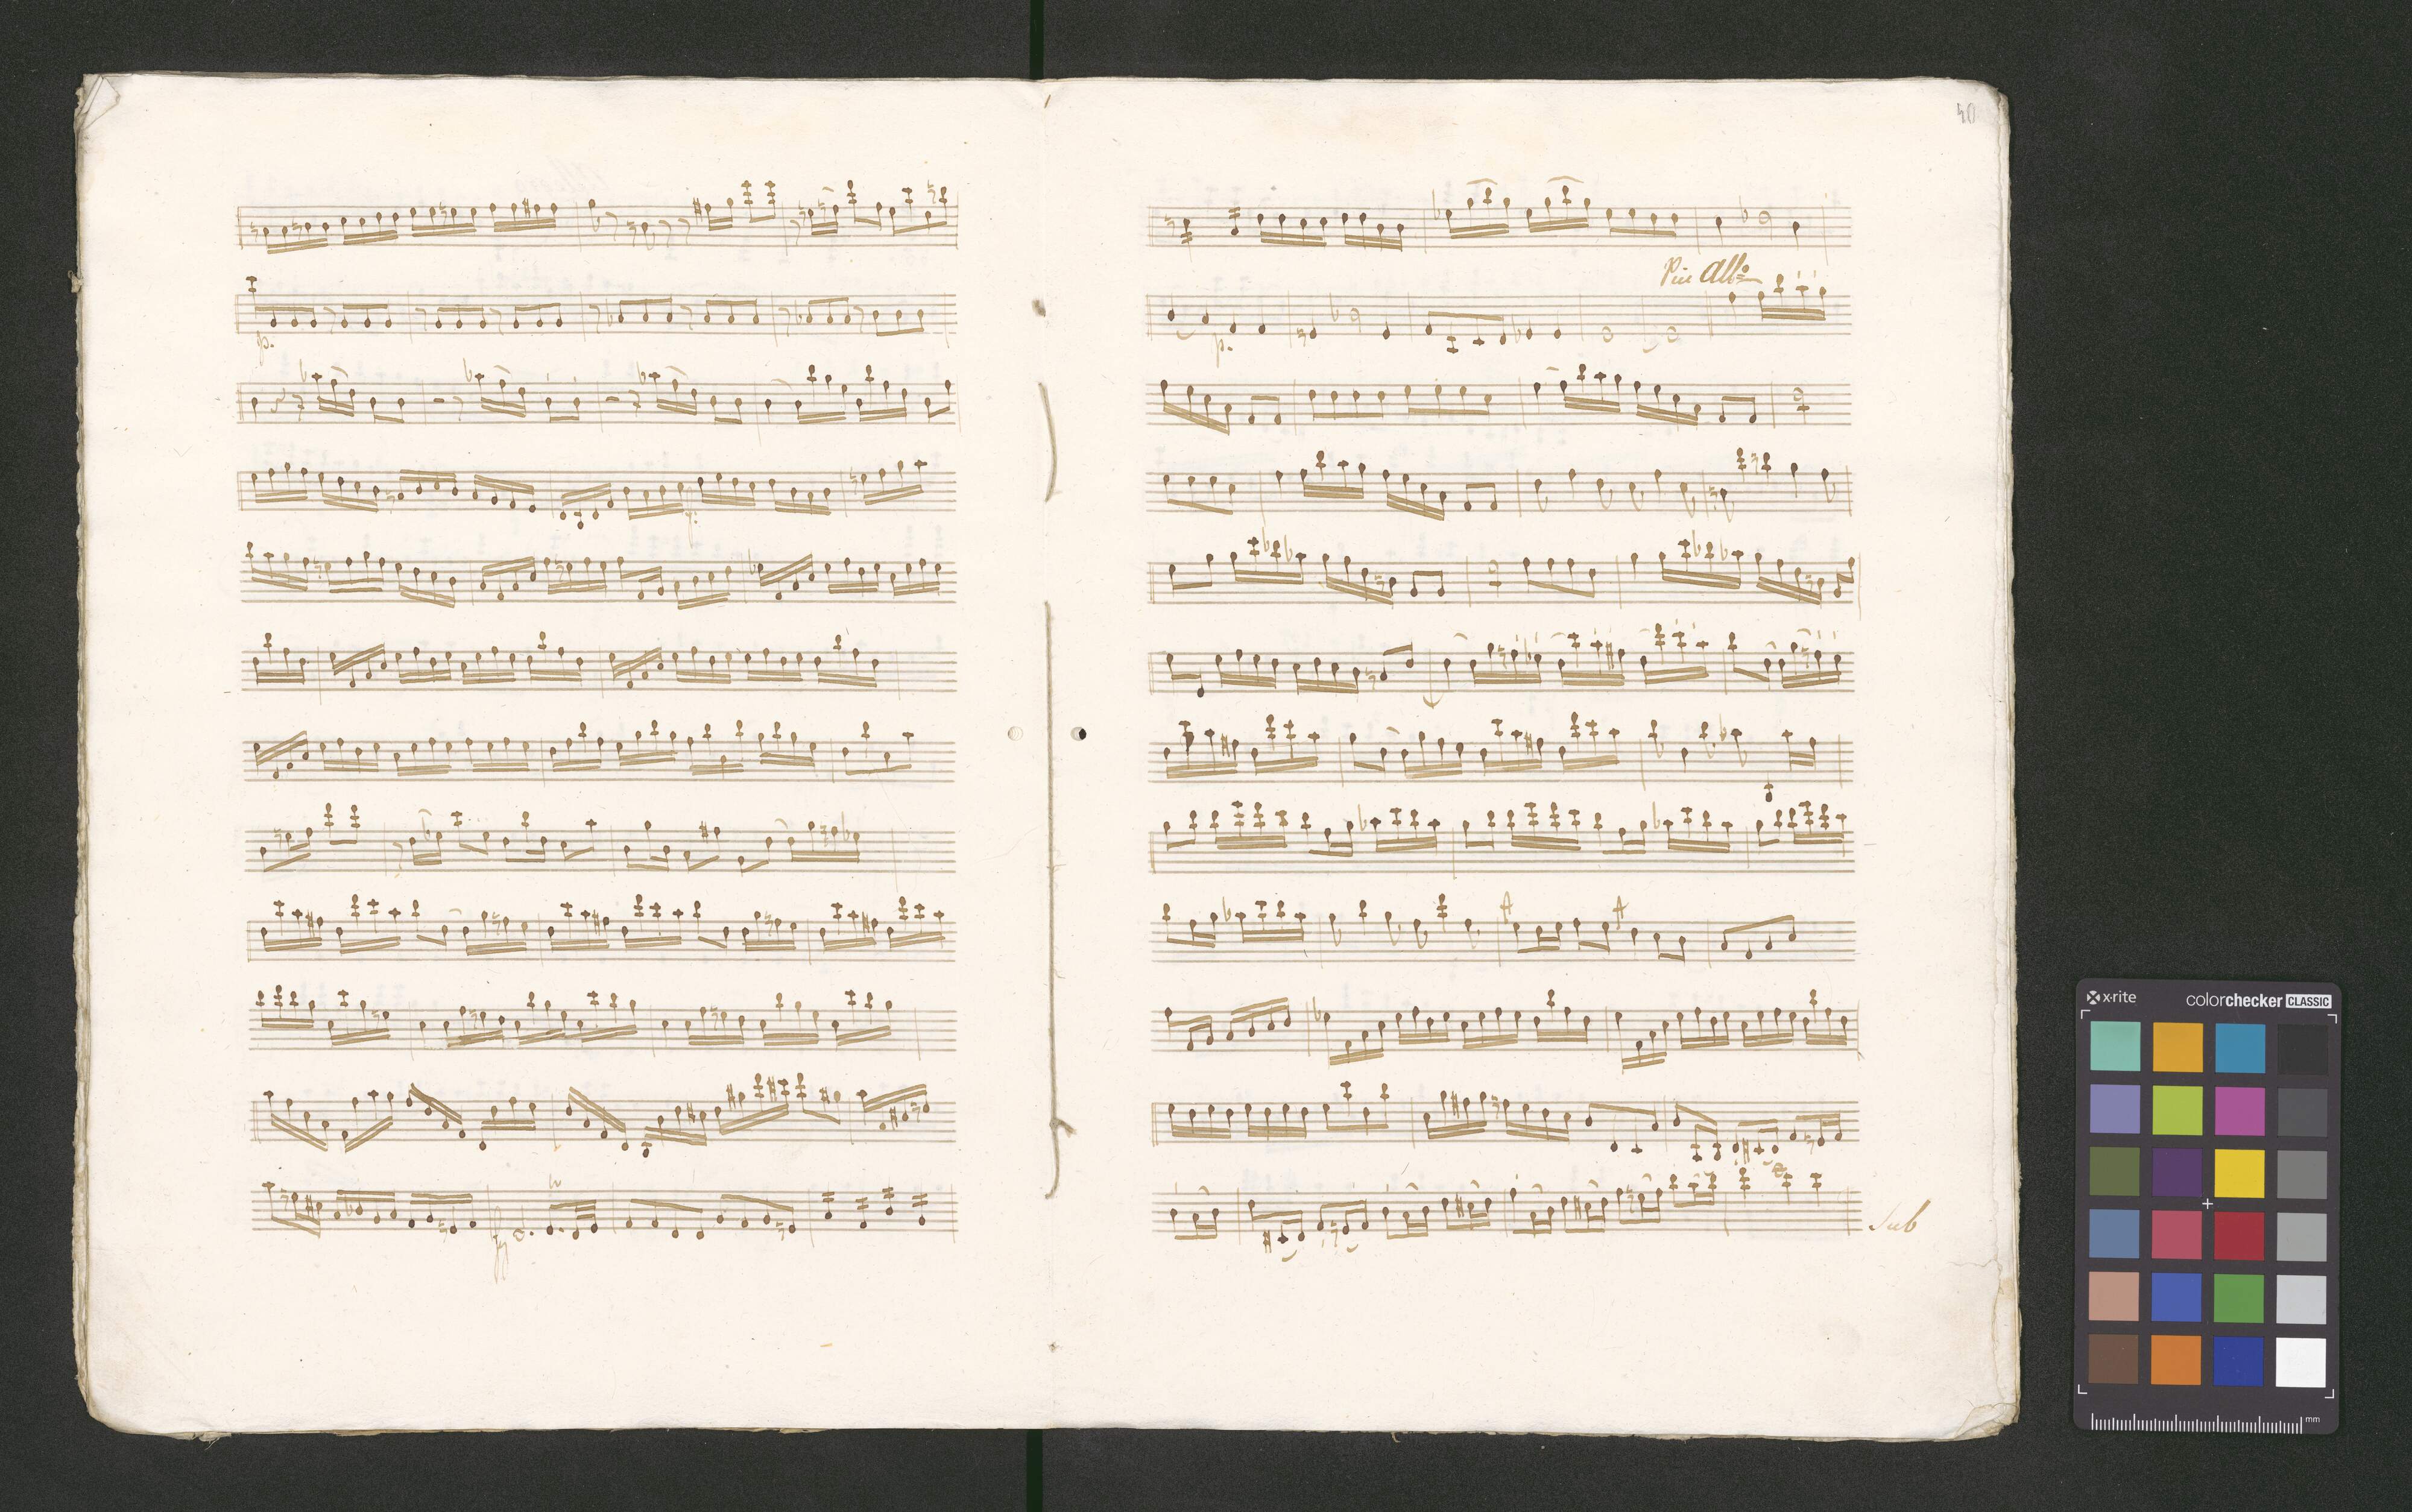 p.
f.
fz
40
Piu All:o
p.
Sub
x·rite
colorchecker CLASSIC
mm